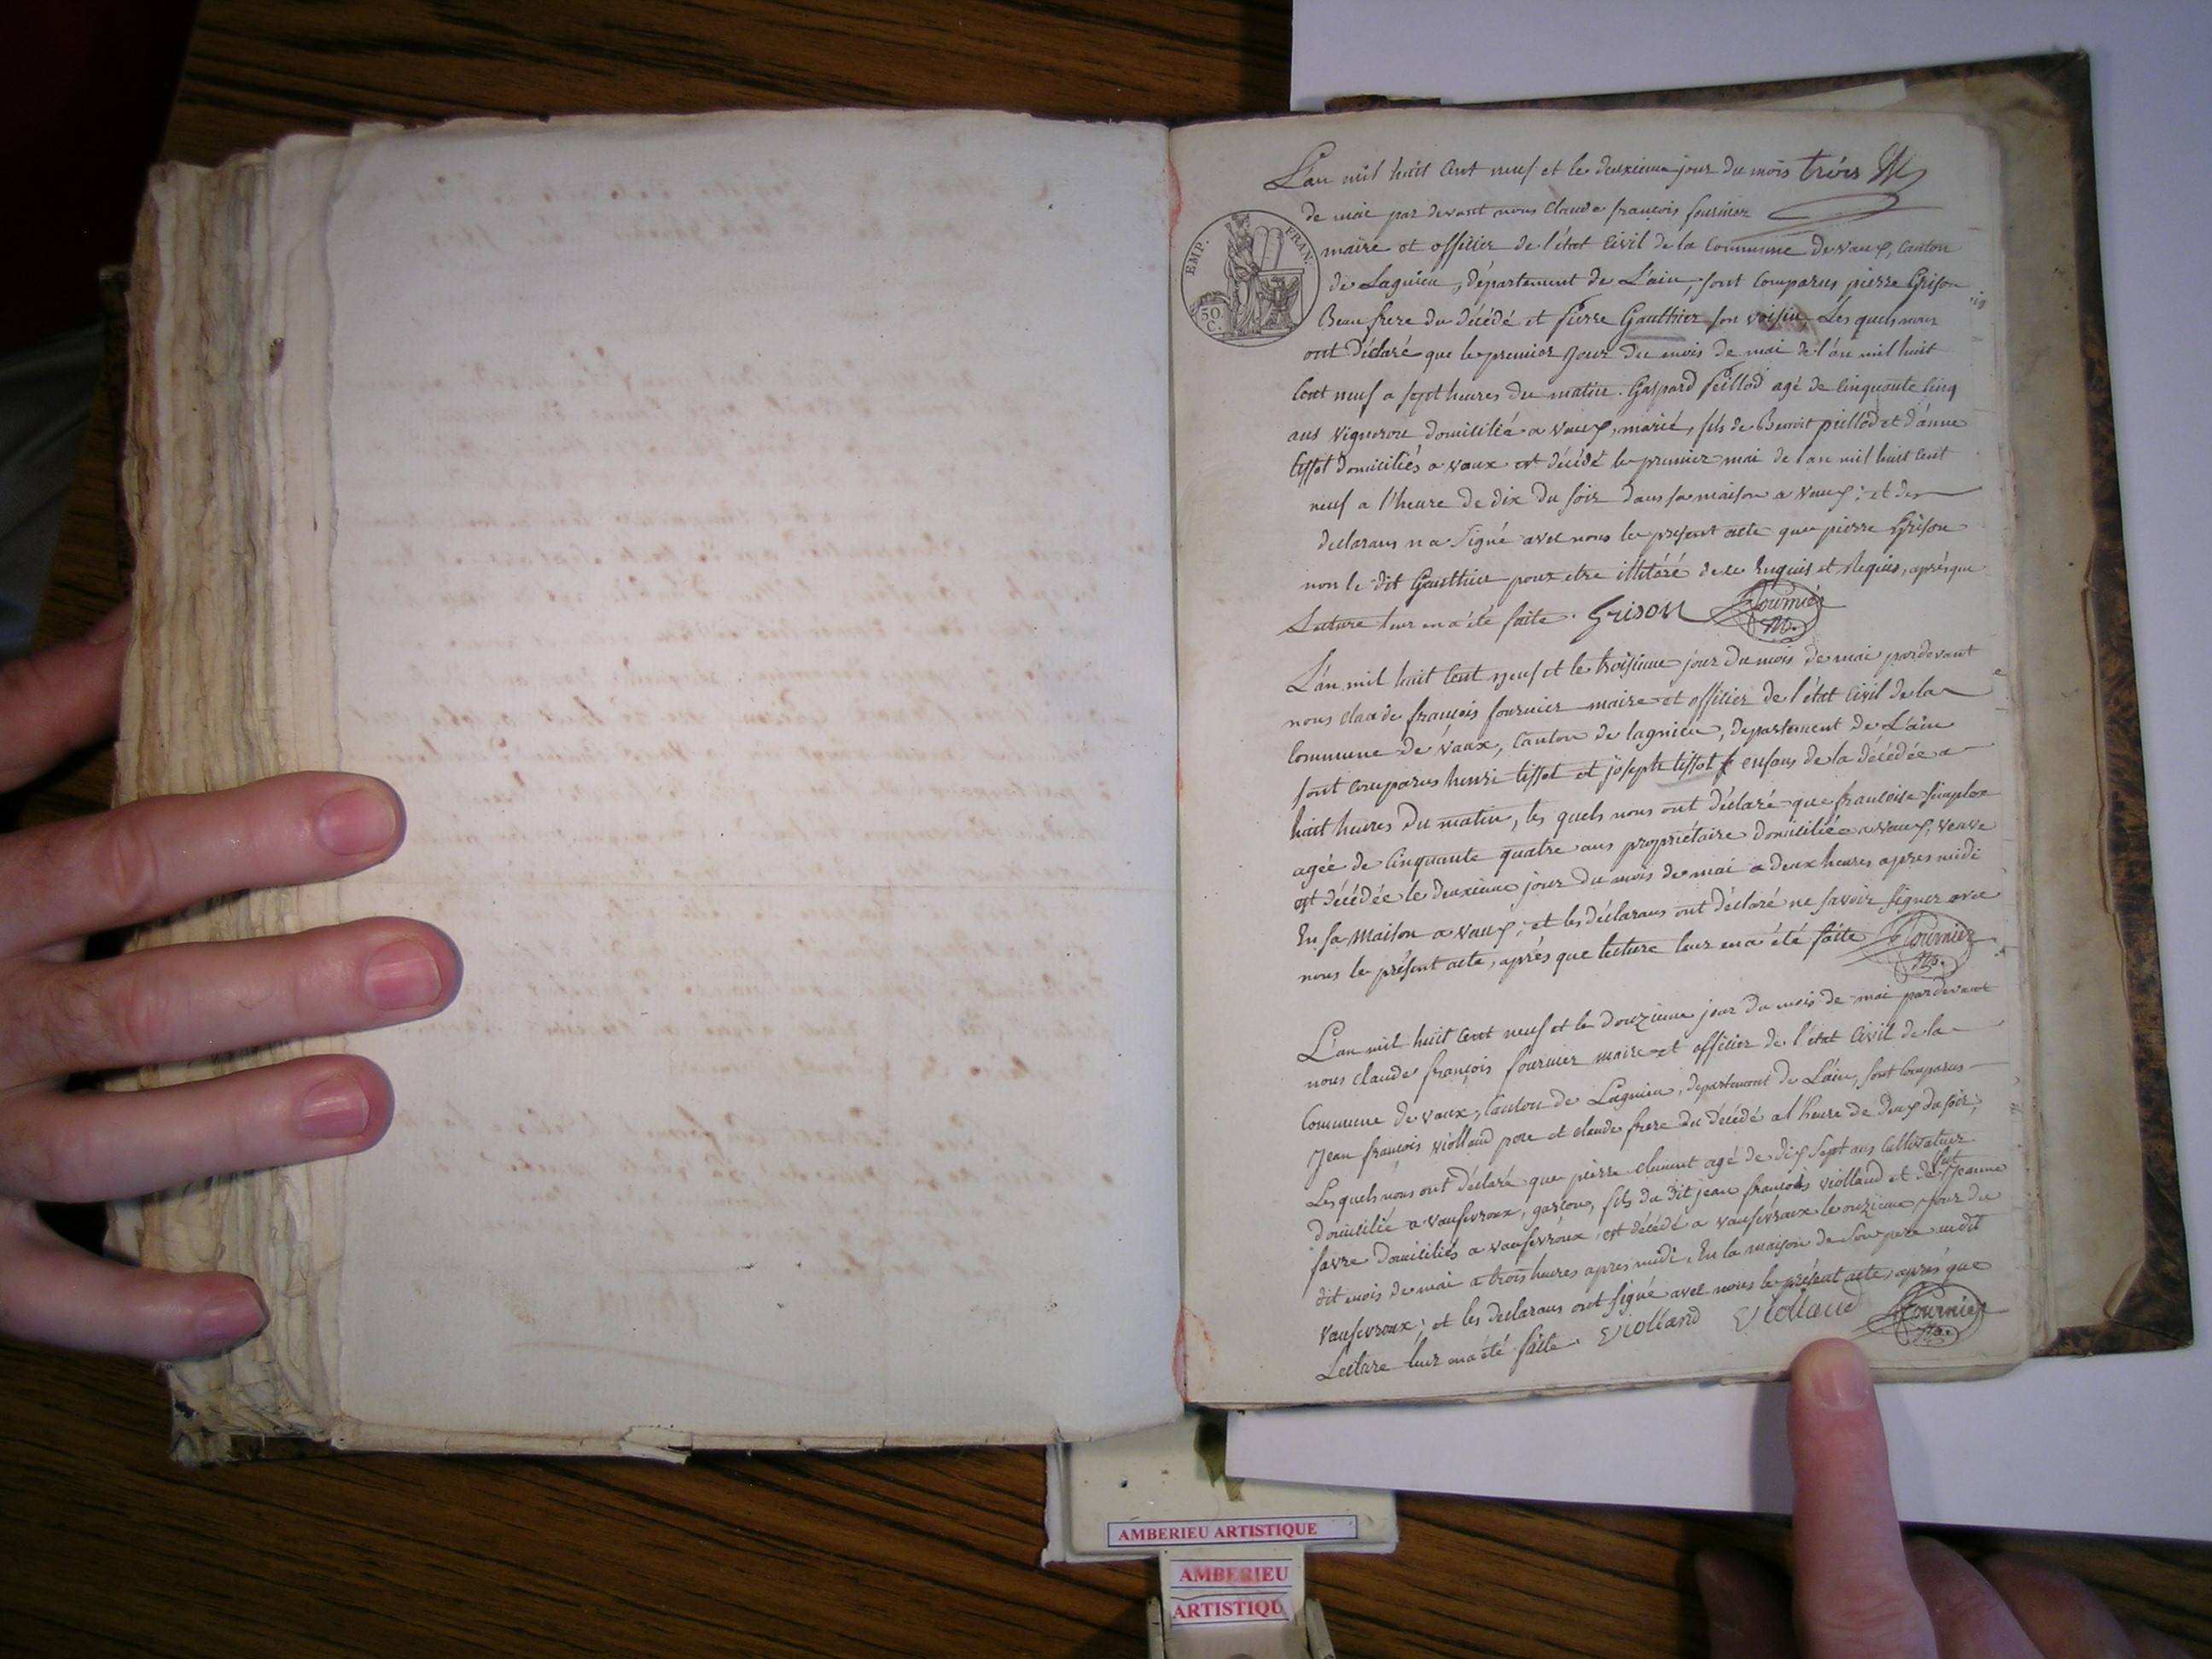 L'an mil huit Cent neuf et le deuxieme jour du mois trois
de mai par devant nous Claude françois fournier
maire et officier de l'état Civil de la Commune de vaux, Canton
de Lagnieu, département de L'ain, sont Comparus pierre Grison
Beau frere du décédé et Pierre Gauthier son voisin, Les quels nous
ont Déclaré que le premier Jour du mois de mai de l'an mil huit
Cent neuf a sept heures du matin. Gaspard Peillod agé de Cinquante Cinq
ans Vigneron domicilié a Vaux, marié, fils de Benoit peillod et d'anne
tissot domiciliés a vaux est décédé le premier mai de l'an mil huit Cent
neuf a l'heure de dix du soir dans sa maison a Vaux; et des
declarans n'a Signé avec nous le présent acte que pierre Grison
non le dit Gauthier pour etre illitéré de ce Enquis et Requis, aprés que
Lecture leur en a été faite. Grison Fournier
m.
L'an mil huit Cent neuf et le troisieme jour du mois de mai pardevant
nous claude françois fournier maire et officier de l'état Civil de la
Commune de vaux, Canton de lagnieu, departement de L'ain
sont comparus henri tissot et joseph tissot enfans de la décédée a
huit heures du matin, les quels nous ont déclaré que francoise
agée de Cinquante quatre ans propriétaire domiciliée a vaux, veuve
est décédée le deuxieme jour du mois de mai a deux heures apres midi
En sa Maison a Vaux; et les déclarans ont déclaré ne savoir signer avec
nous le présent acte, aprés que lecture leur en a été faite Fournier
m.
L'an mil huit Cent neuf et le douzieme jour du mois de mai pardevant
nous claude françois fournier maire et officier de l'état Civil de la
Commune de vaux, Canton de Lagnieu, departement de L'ain, sont Comparus
Jean francois violland pere et claude frere du décédé a l'heure de deux du soir;
Les quels nous ont déclaré que pierre clement agé de dix sept ans Cultivateur
domicilié a vaufevroux, garcon, fils du dit jean francois violland et de Jeanne
favre domiciliés a vaufevroux, est décédé a vaufevroux le onzieme jour du
dit mois de mai a trois heures apres midi, En la maison de Son pere audit
Vaufevroux; et les declarans ont signé avec nous le présent acte, aprés que
Lecture leur en a été faite. Violland Viollaud Fournier
m.
EMP. FRAN.
50.
C.
AMBERIEU ARTISTIQUE
AMBERIEU
ARTISTIQU